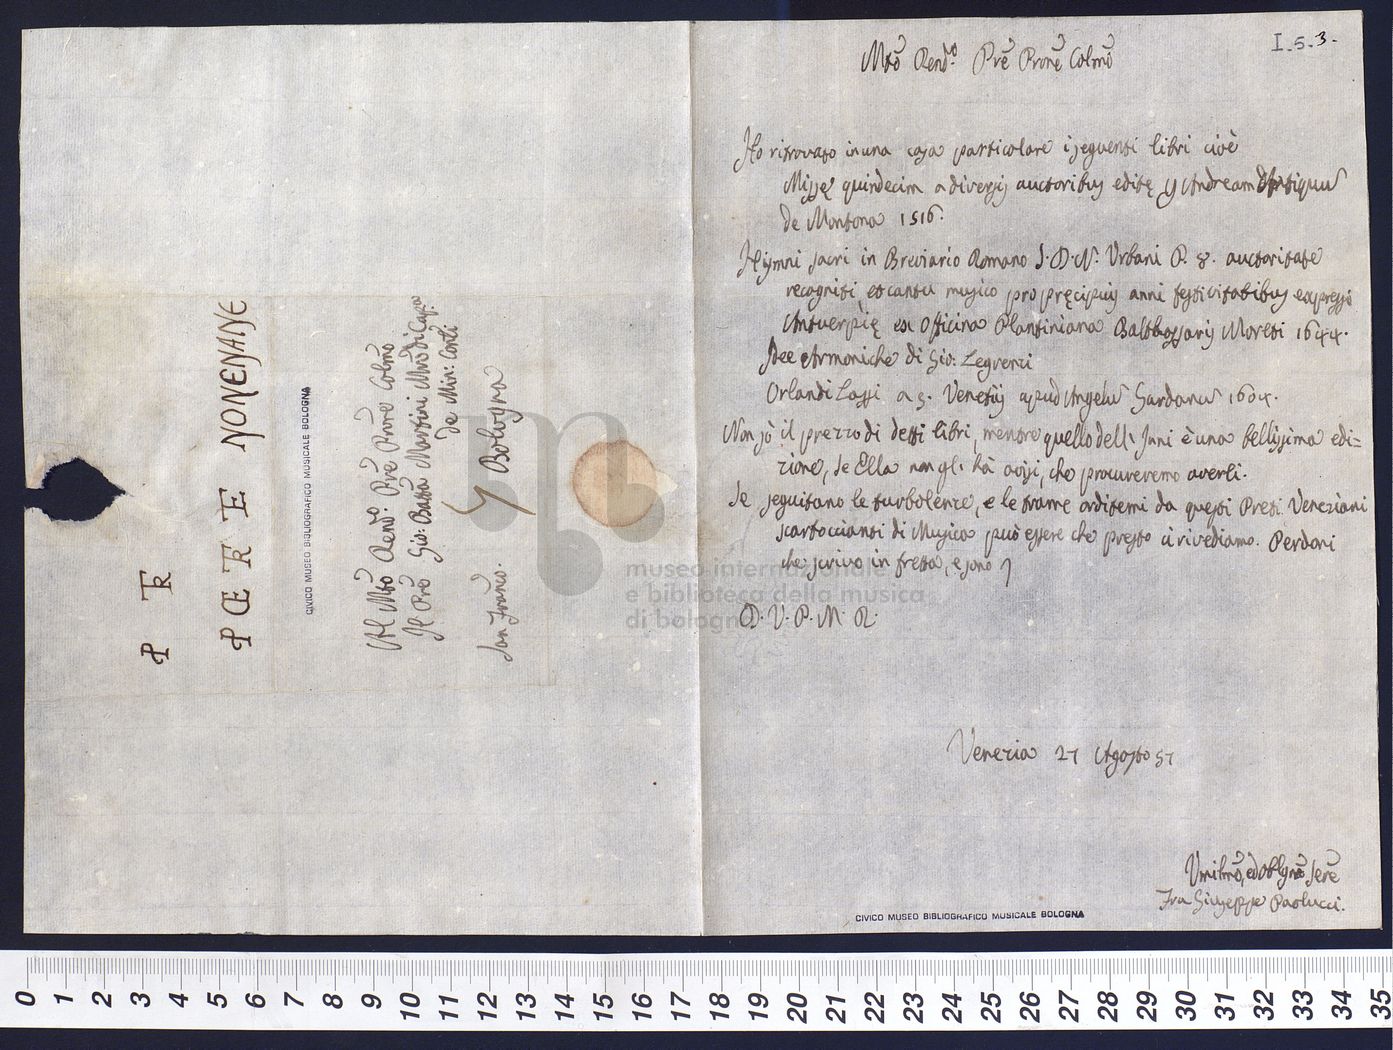 I. 5. 3.
Mto Rendo. Pre Prone Colmo
Ho ritrovato in una casa particolare i seguenti libri cioè
Missę quindecim a diversis auctoribus editę p Andream Antiquu
de Montona 1516.
Hijmni sacri in Breviario Romano S. D. N. Urbani P. 8. auctoritate
recogniti, et cantu musico pro pręcipuis anni festivitatibus expressi
Antuerpię ex Officina Plantiniana Balthassaris Moreti 1644.
Idee Armoniche di Gio: Legrenzi
Orlandi Lassi a 5. Venetijs apud Angelu Gardanu 1604.
Non sò il prezzo di detti libri, mentre quello dell' Inni è una bellissima edi=
zione, se Ella non gli hà costì, che procureremo averli.
Se seguitano le turbolenze, e le trame orditemi da questi Preti Veneziani
scartoccianti di Musica può essere che presto ci rivediamo. Perdoni
che scrivo in fretta, e sono
D. V. P. M. R.
Venezia 27 Agosto 57
Umilmo, ed oblgmo Serre
Fra Giuseppe Paolucci.
CIVICO MUSEO BIBLIOGRAFICO MUSICALE BOLOGNA
P TR
POETRE NONENANE
CIVICO MUSEO BIBLIOGRAFICO MUSICALE BOLOGNA
Al Mto Rendo: Pre Prone Colmo
Il Pre Gio: Batta Martini Mro di Capa
De Min: Conti
San Franco.
p Bologna
museo internazionale
e biblioteca della musica
di bologna
0 1 2 3 4 5 6 7 8 9 10 11 12 13 14 15 16 17 18 19 20 21 22 23 24 25 26 27 28 29 30 31 32 33 34 35